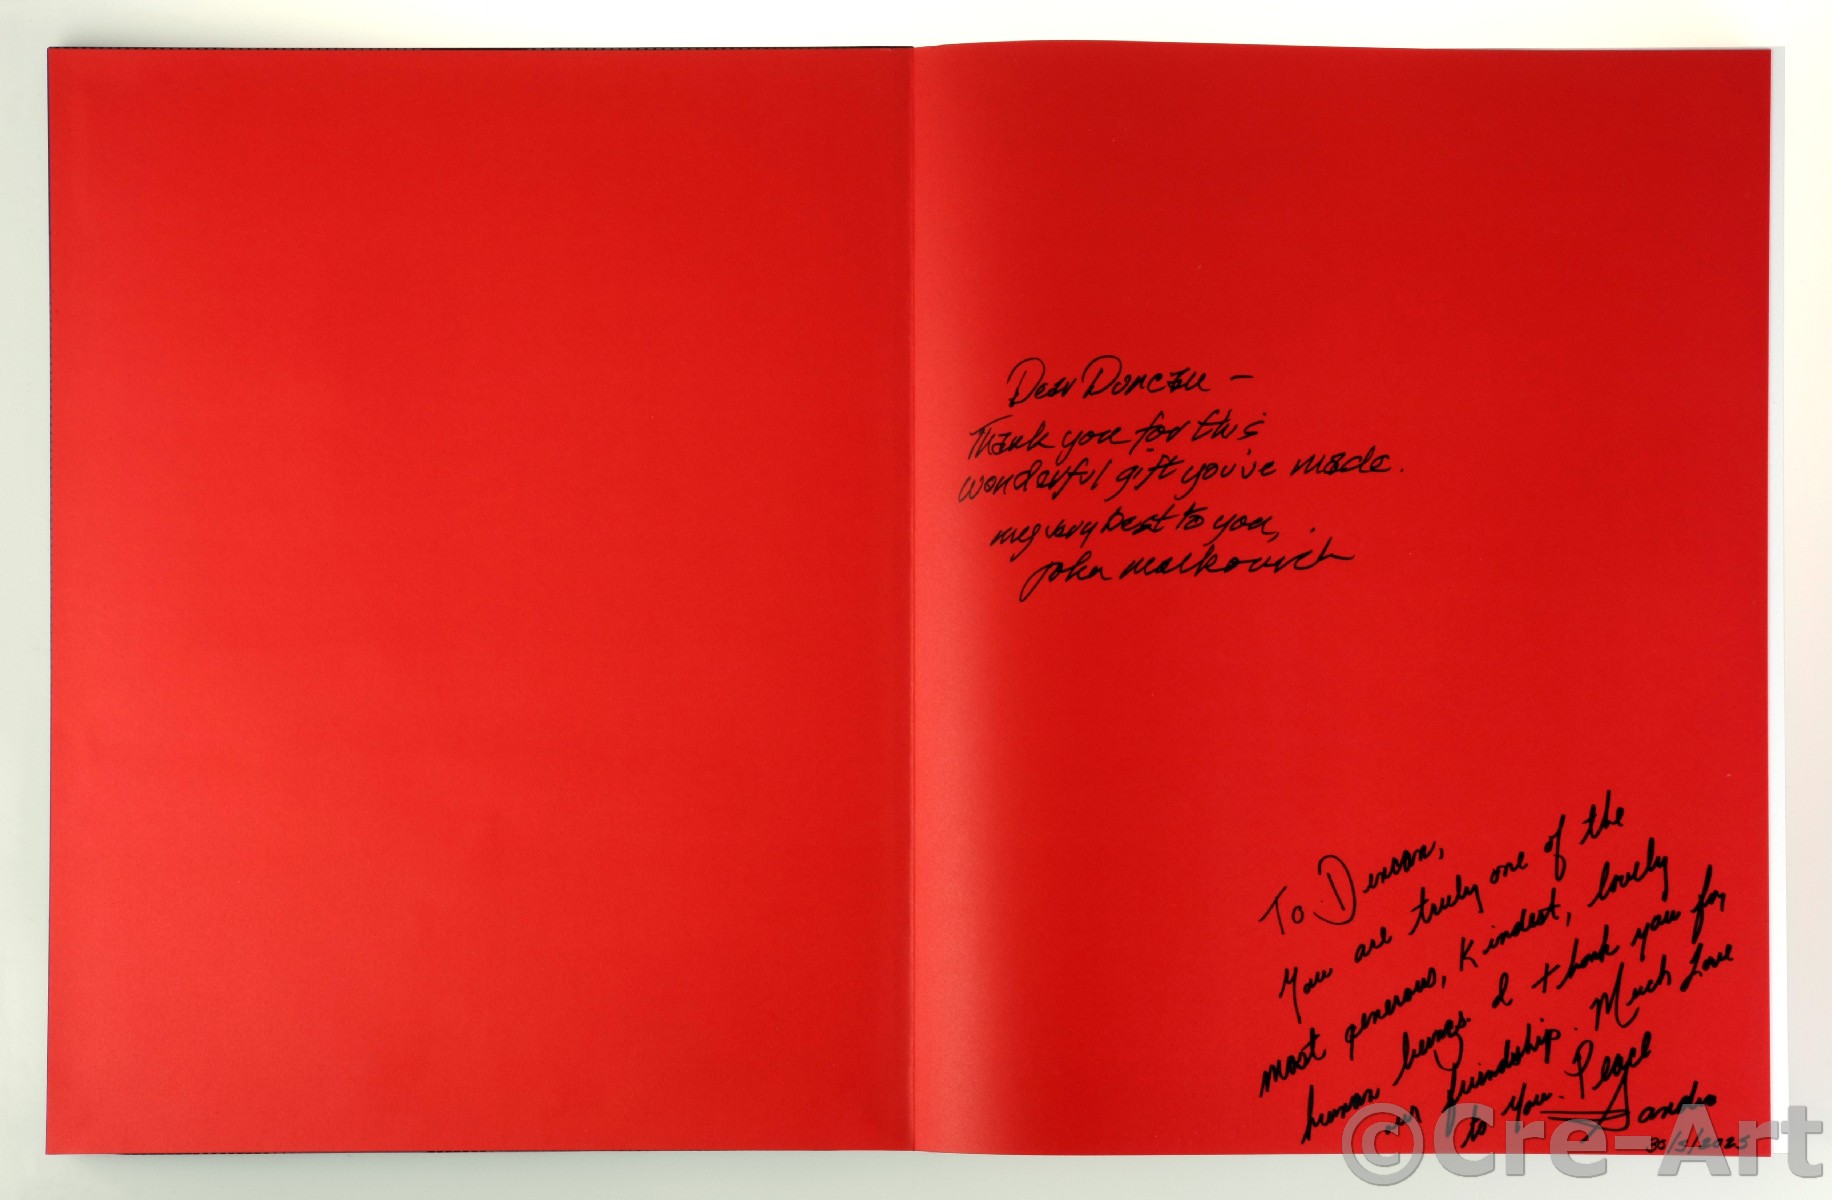 Dear Duncan –
Thank you for this
wonderful gift you've made.
my very best to you,
john malkovich
To Duncan,
You are truly one of the
most generous, kindest, lovely
human beings. I thank you for
our friendship. Much Love
to you. Peace
Sandro
30/5/2025
©Cre-Art